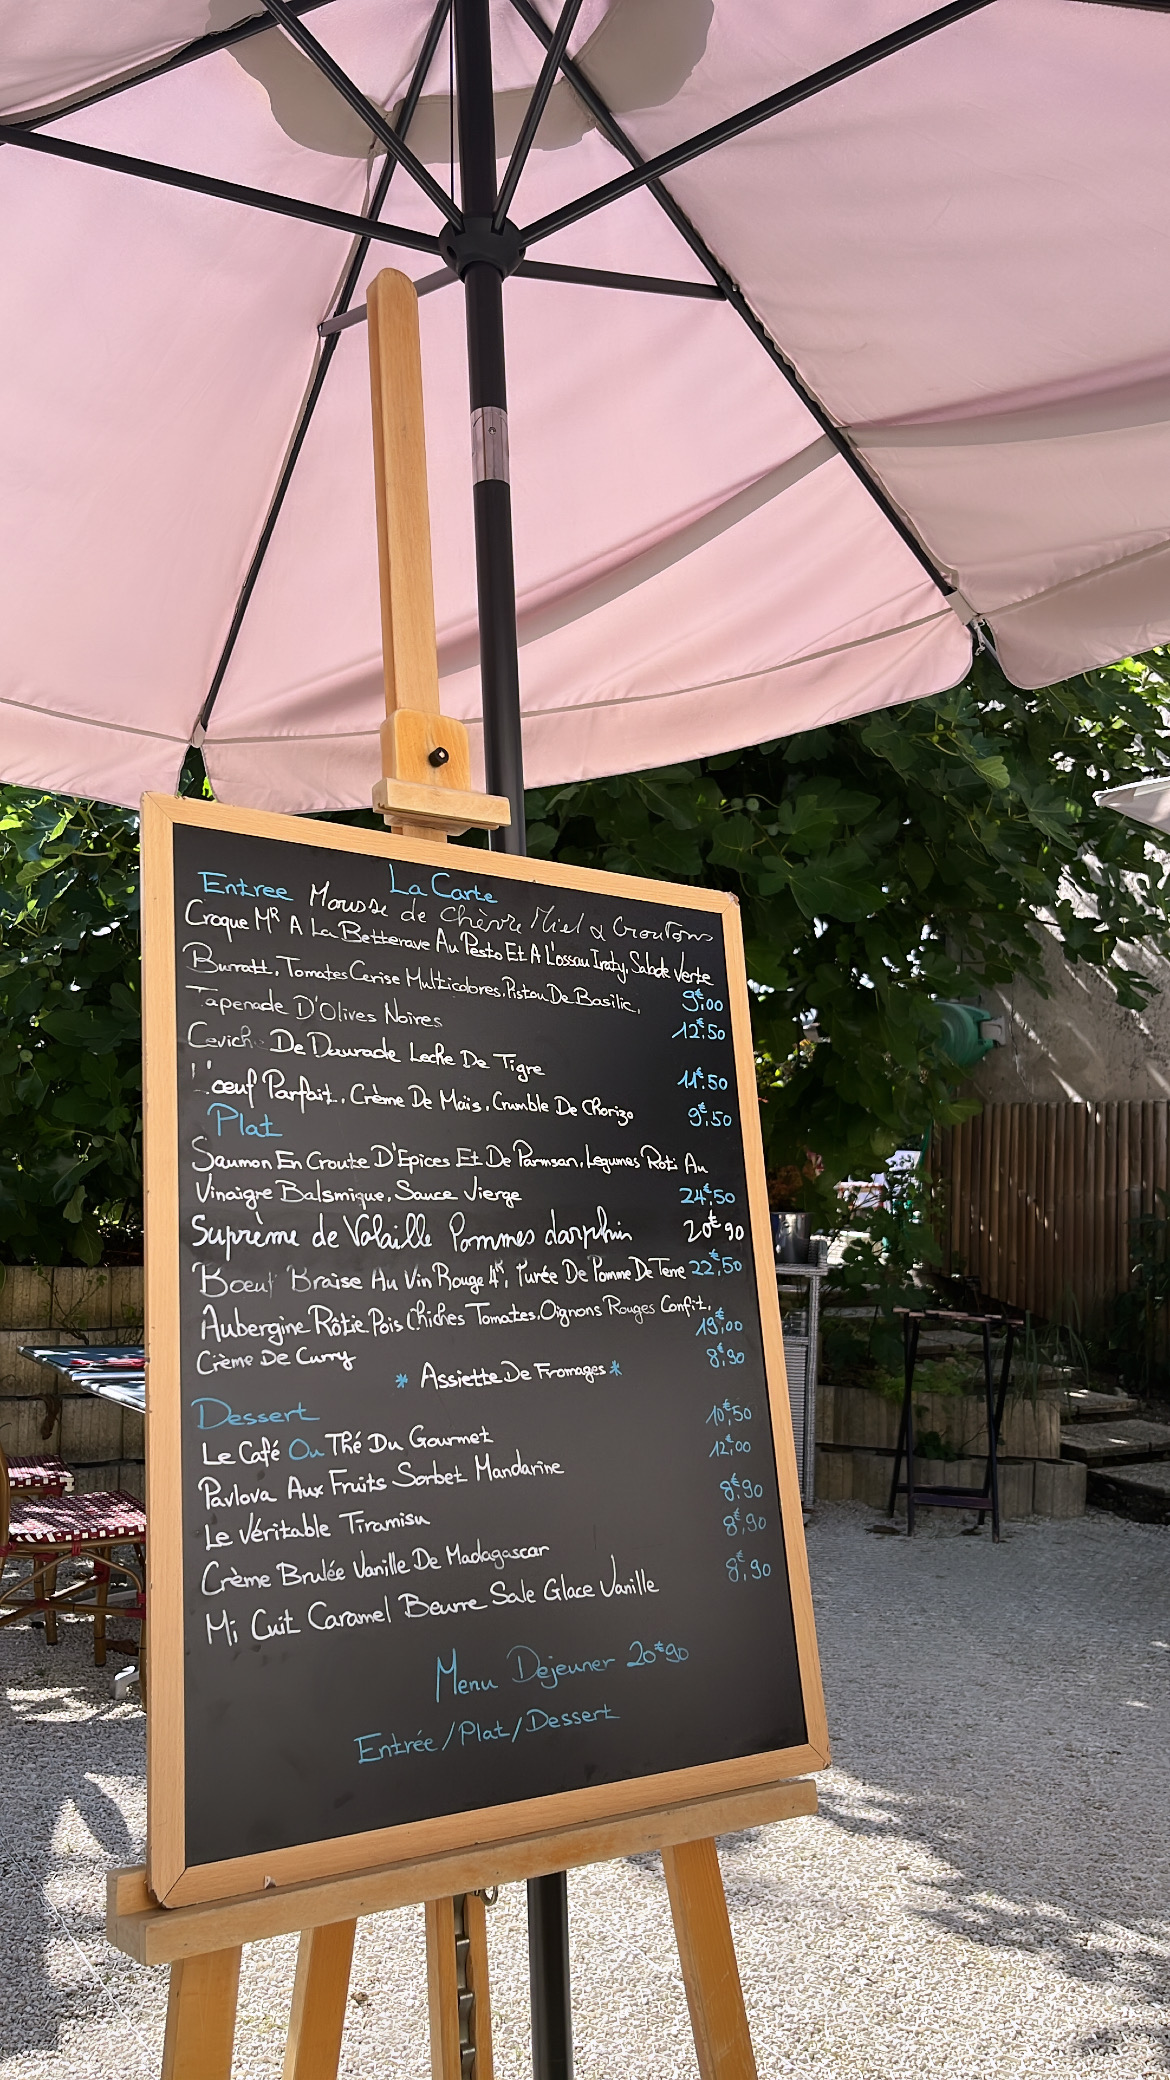 La Carte
Entree Mousse de Chèvre Miel & Croutons
Croque Mr A La Betterave Au Pesto Et A L'ossau Iraty, Salade Verte
9€,00
Burratt, Tomates Cerise Multicolores, Pistou De Basilic,
Tapenade D'Olives Noires
12€,50
Cevich De Daurade Leche De Tigre
11€,50
L'œuf Parfait, Crème De Maïs, Crumble De Chorizo
9€,50
Plat
Saumon En Croute D'Epices Et De Parmsan, Legumes Roti Au
Vinaigre Balsmique, Sauce Vierge
24€,50
Suprème de Volaille Pommes darphin 20€90
Bœuf Braise Au Vin Rouge, Purée De Pomme De Terre 22€,50
Aubergine Rôtie Pois Chiches Tomates, Oignons Rouges Confit,
Crème De Curry
19€,00
* Assiette De Fromages *
8€,90
Dessert
Le Café Ou Thé Du Gourmet
10€,50
Pavlova Aux Fruits Sorbet Mandarine
12€,00
Le Véritable Tiramisu
8€,90
Crème Brulée Vanille De Madagascar
8€,90
Mi Cuit Caramel Beurre Sale Glace Vanille
8€,90
Menu Dejeuner 20€90
Entrée/Plat/Dessert